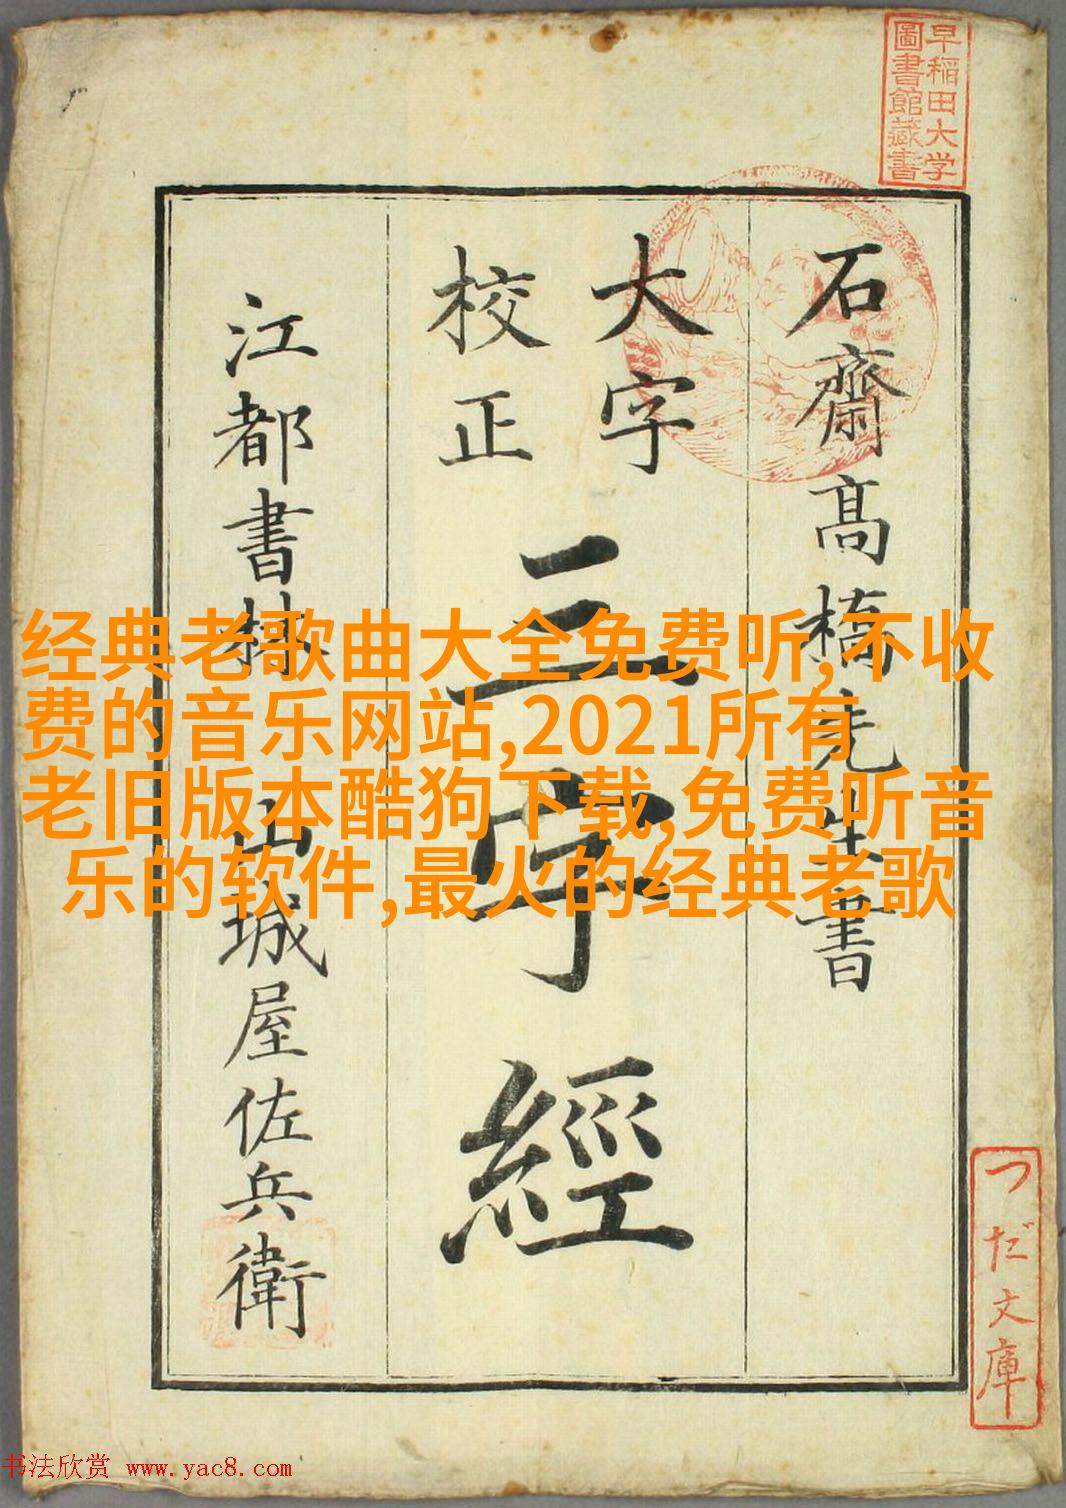 早稲田大学
圖書館藏書
石齋高橋先生書
大字
校正
三字經
江都書林
山城屋佐兵衛
经典老歌曲大全免费听,不收
费的音乐网站,2021所有
老旧版本酷狗下载,免费听音
乐的软件,最火的经典老歌
つだ文庫
书法欣赏 www.yac8.com